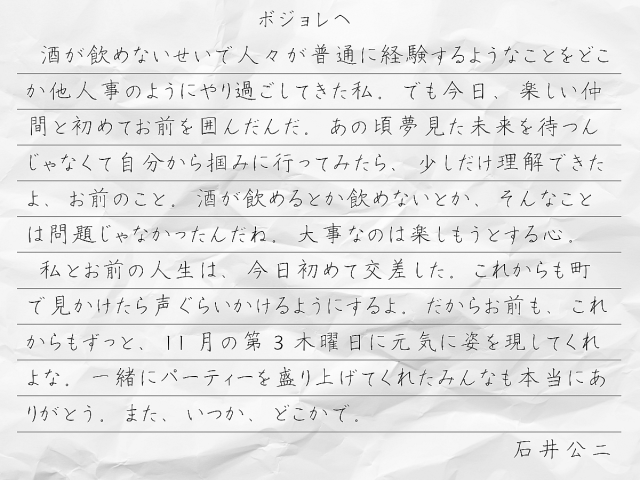 ボジョレへ
酒が飲めないせいで人々が普通に経験するようなことをどこ
か他人事のようにやり過ごしてきた私．でも今日、楽しい仲
間と初めてお前を囲んだんだ．あの頃夢見た未来を待つん
じゃなくて自分から掴みに行ってみたら、少しだけ理解できた
よ、お前のこと．酒が飲めるとか飲めないとか、そんなこと
は問題じゃなかったんだね．大事なのは楽しもうとする心。
私とお前の人生は、今日初めて交差した．これからも町
で見かけたら声ぐらいかけるようにするよ．だからお前も、これ
からもずっと、11月の第3木曜日に元気に姿を現してくれ
よな．一緒にパーティーを盛り上げてくれたみんなも本当にあ
りがとう．また、いつか、どこかで。
石井公二